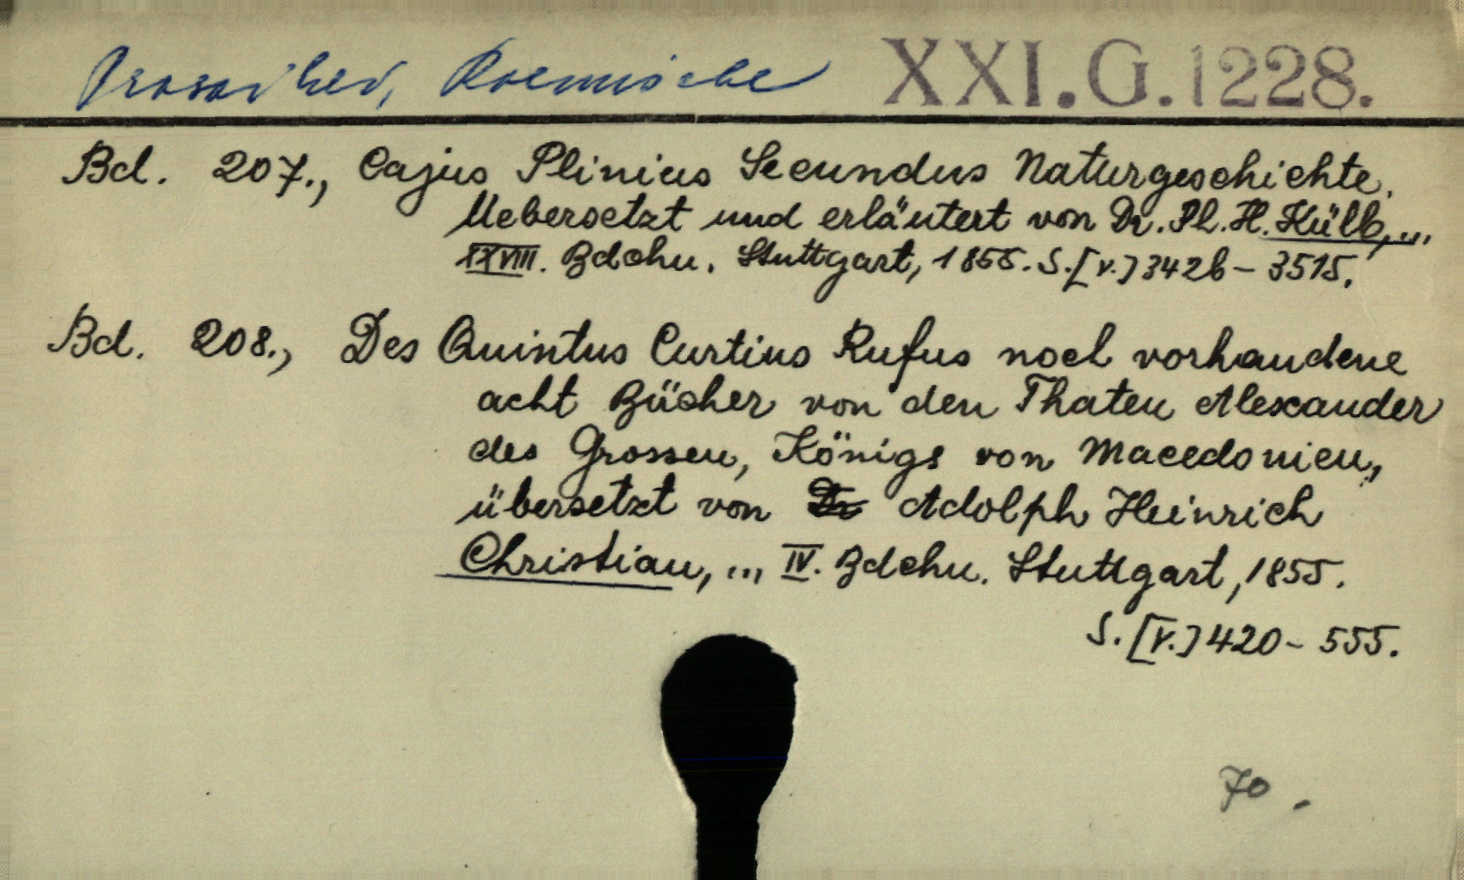 Prosaiker, Roemische XXI.G.1228.
Bd. 207., Cajus Plinius Secundus Naturgeschichte.
Uebersetzt und erläutert von Dr. Ph. H. Külb,...
XXVIII. Bdchn. Stuttgart, 1855. S.[v.] 3426-3515.
Bd. 208., Des Quintus Curtius Rufus noch vorhandene
acht Bücher von den Thaten Alexander
des Grossen, Königs von Macedonien,
übersetzt von Dr Adolph Heinrich
Christian, ... IV. Bdchn. Stuttgart, 1855.
S. [V.] 420-555.
70.